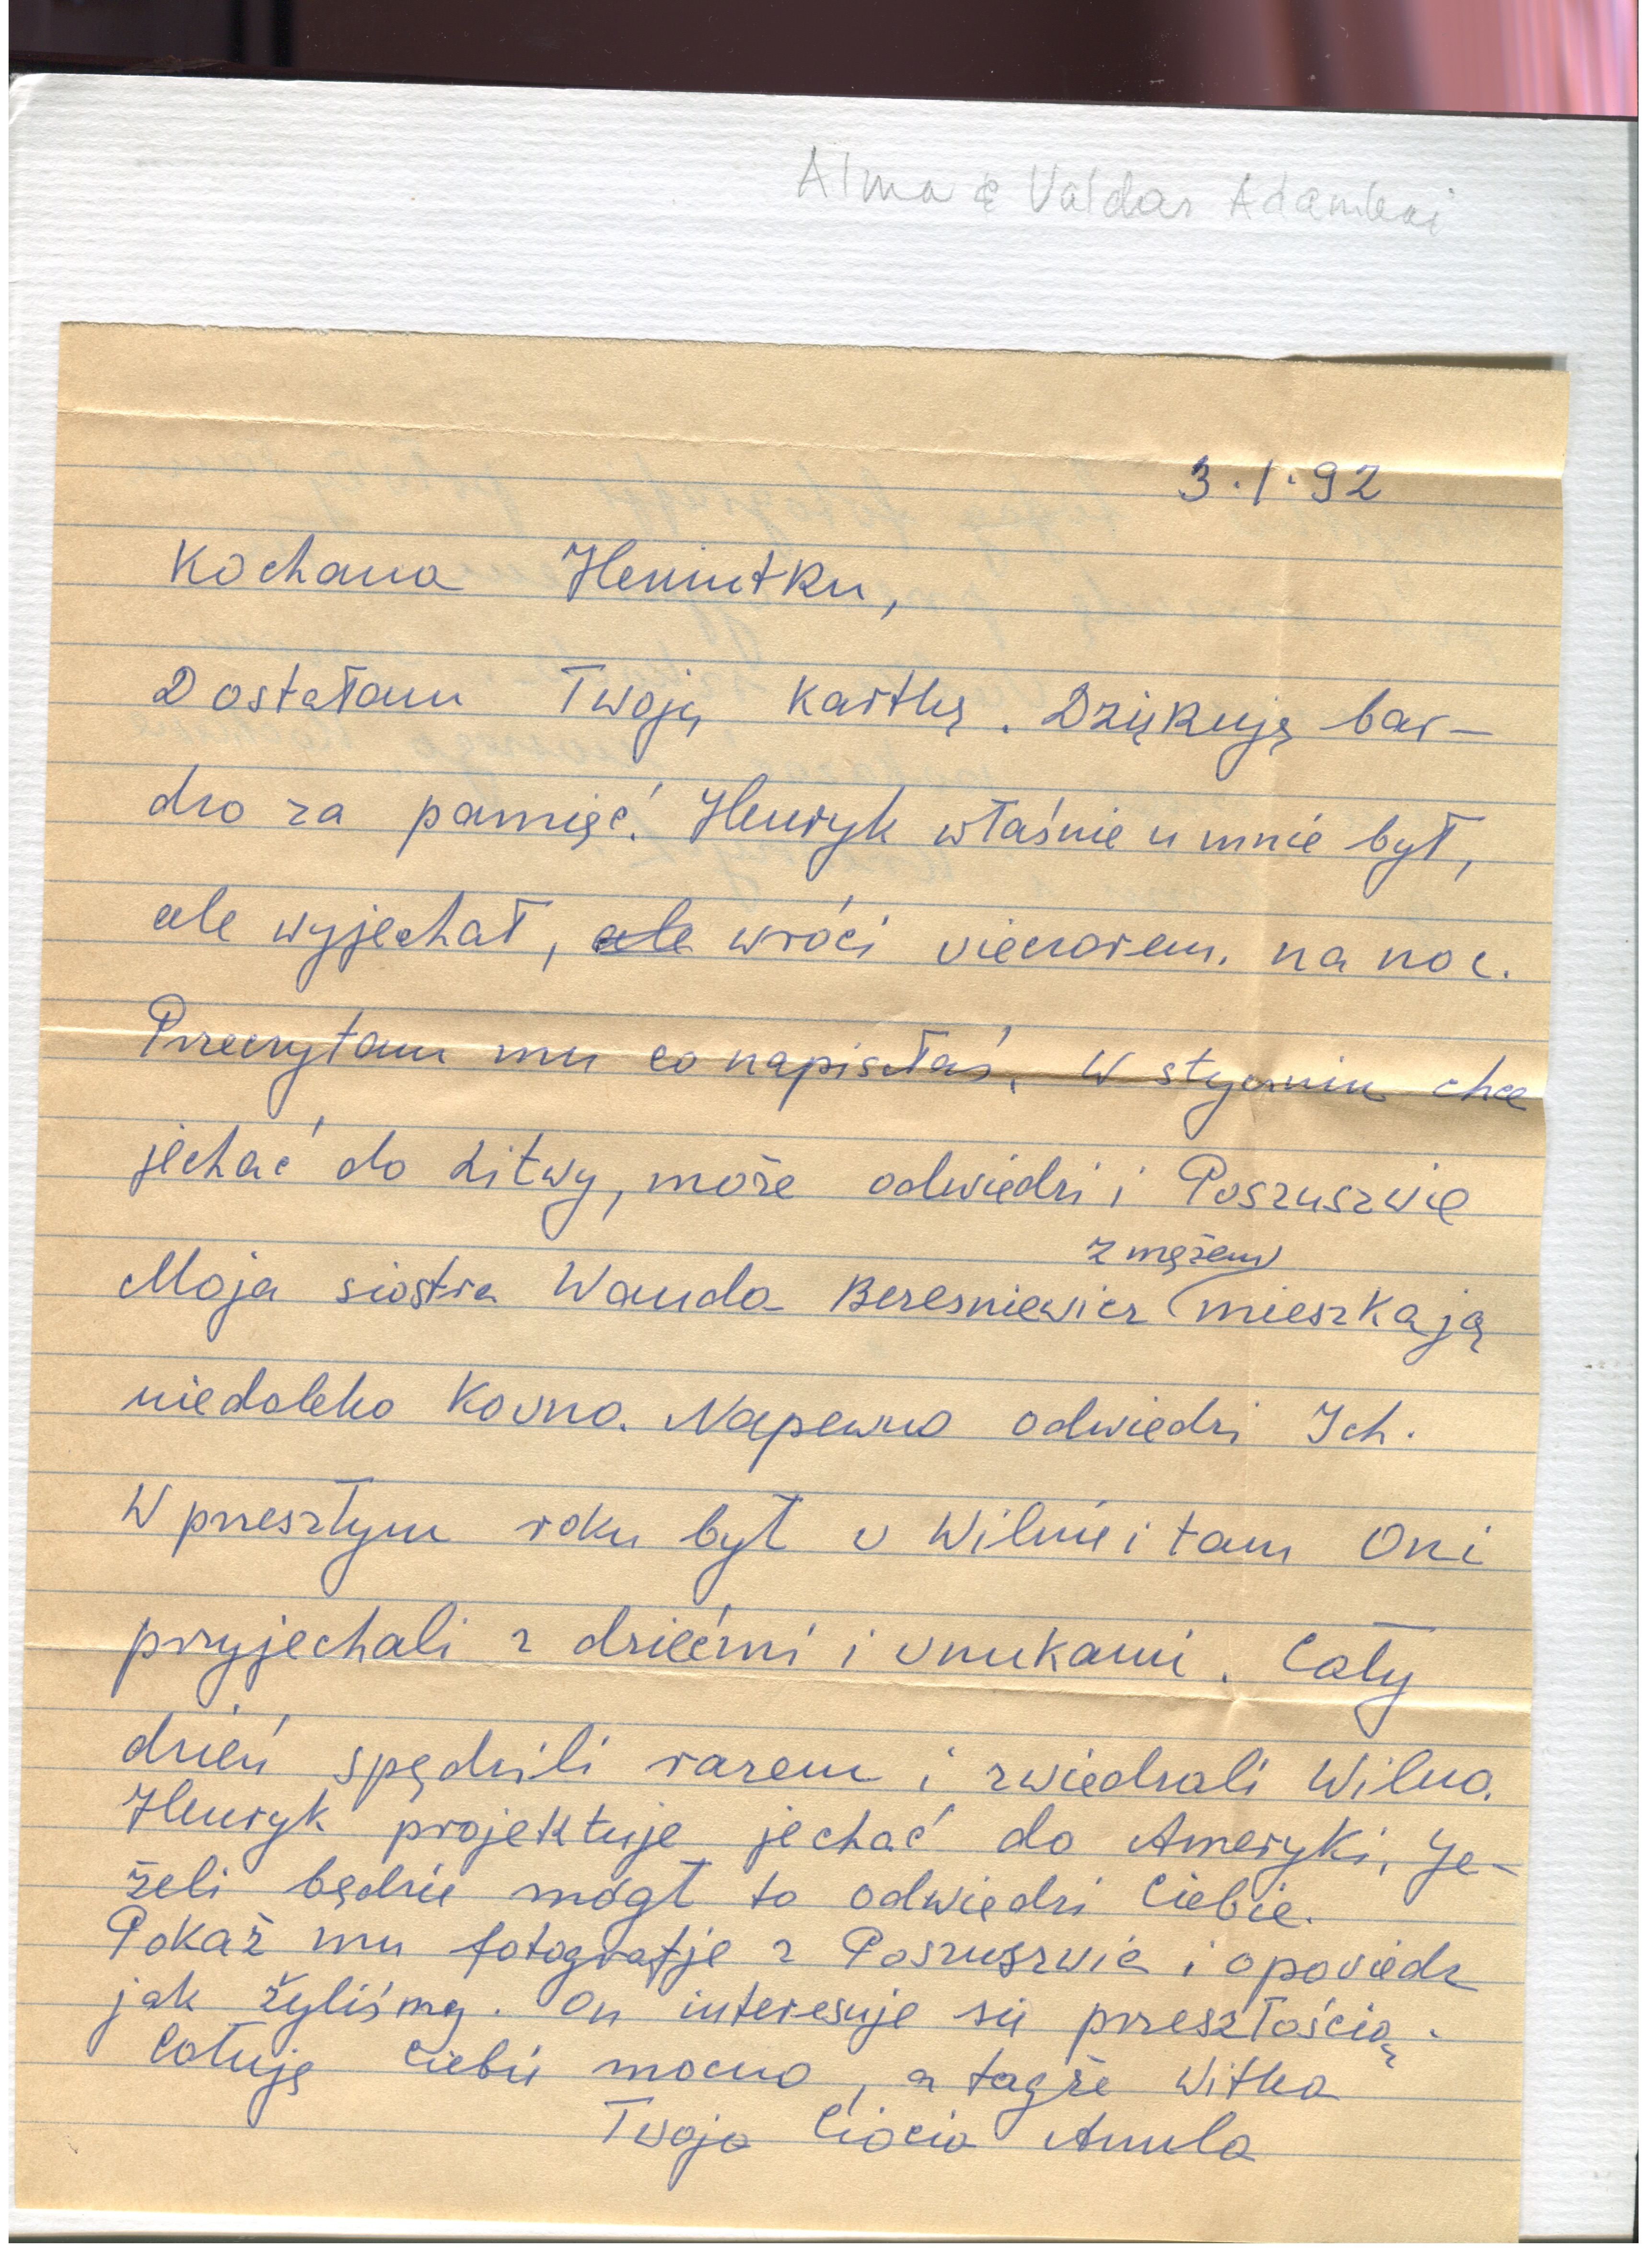 Alma & Valdas Adamkai
3.1.92
Kochana Heniutku,
Dostałam Twoją kartkę. Dziękuję bar-
dzo za pamięć. Henryk właśnie u mnie był,
ale wyjechał, ale wróci vieczorem. na noc.
Przeczytam mu co napisałaś. W styczniu chce
jechać do Litwy, może odwiedzi i Poszuszvie
z mężem
Moja siostra Wanda Beresniewicz mieszkają
niedaleko Kovna. Napewno odwiedzi Ich.
W przeszłym roku był v Wilnie i tam Oni
przyjechali z dziećmi i vnukami. Cały
dzień spędzili razem i zwiedzali Wilno.
Henryk projektuje jechać do Ameryki, Je-
żeli będzie mógł to odwiedzi Ciebie.
Pokaż mu fotografje z Poszuszvie i opoviedz
jak żyliśmy. On interesuje się przeszłością.
Całuję Ciebie mocno, a tagże Witka
Twoja Ciocia Anula